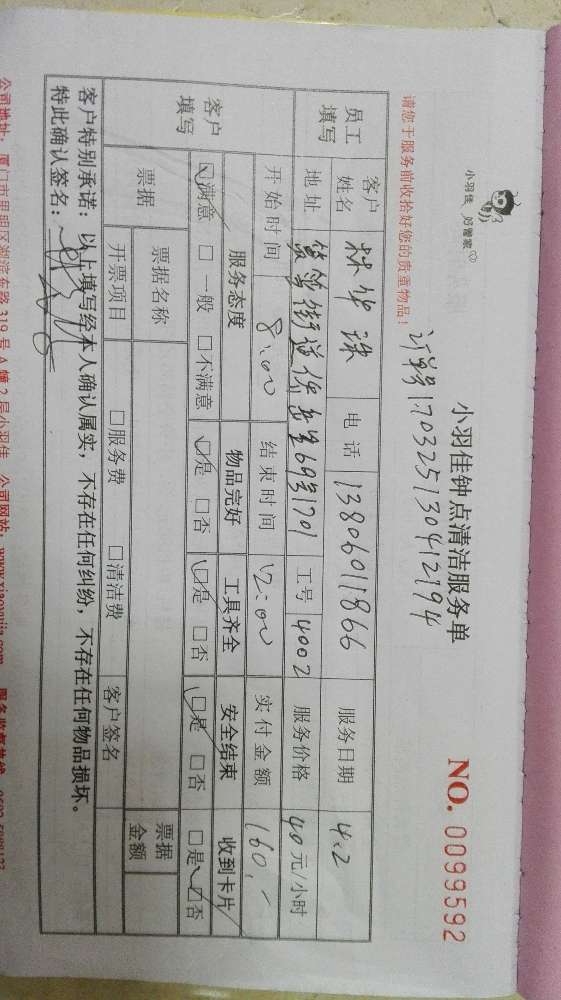 小羽佳 好管家®
小羽佳钟点清洁服务单
NO. 0099592
请您于服务前收拾好您的贵重物品！
订单号170325130412194
员工填写 客户姓名 林华珠 电话 13806011866 服务日期 4.2
地址 筼筜街道 69 1701 工号 4002 服务价格 40元/小时
客户填写 开始时间 8:00 结束时间 12:00 实付金额 160.-
服务态度 物品完好 工具齐全 安全结束 收到卡片
☑满意 □一般 □不满意 ☑是 □否 ☑是 □否 ☑是 □否 □是 ☑否
票据 票据名称 票据金额
开票项目 □服务费 □清洁费 客户签名
客户特别承诺：以上填写经本人确认属实，不存在任何纠纷，不存在任何物品损坏。
特此确认签名：
公司地址：厦门市思明区湖滨东路319号A幢2层小羽佳 公司网站：www.xiaoyujia.com 服务监督热线